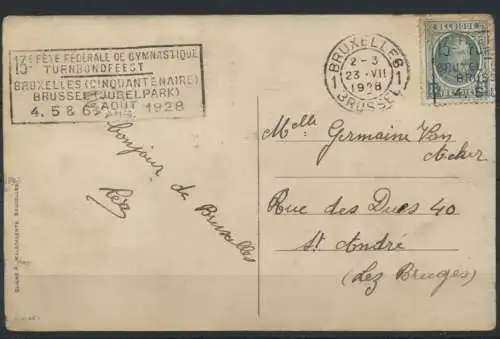 13e FÊTE FÉDÉRALE DE GYMNASTIQUE
TURNBONDFEEST
BRUXELLES (CINQUANTENAIRE)
BRUSSEL (JUBELPARK)
4. 5 & 6 AOUT 1928
BRUXELLES
1 2-3 1
23 VII
1928
BRUSSEL
BELGIQUE
bonjour de Bruxelles
Melle Germaine Van
Acker
Rue des Dues 40
St André
(Lez Bruges)